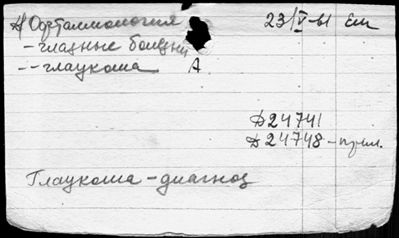 Д) Офтальмология 23/V-61 Ет
- глазные болезни
-- глаукома А.
Д 24741
Д 24748 - прил.
Глаукома - диагноз